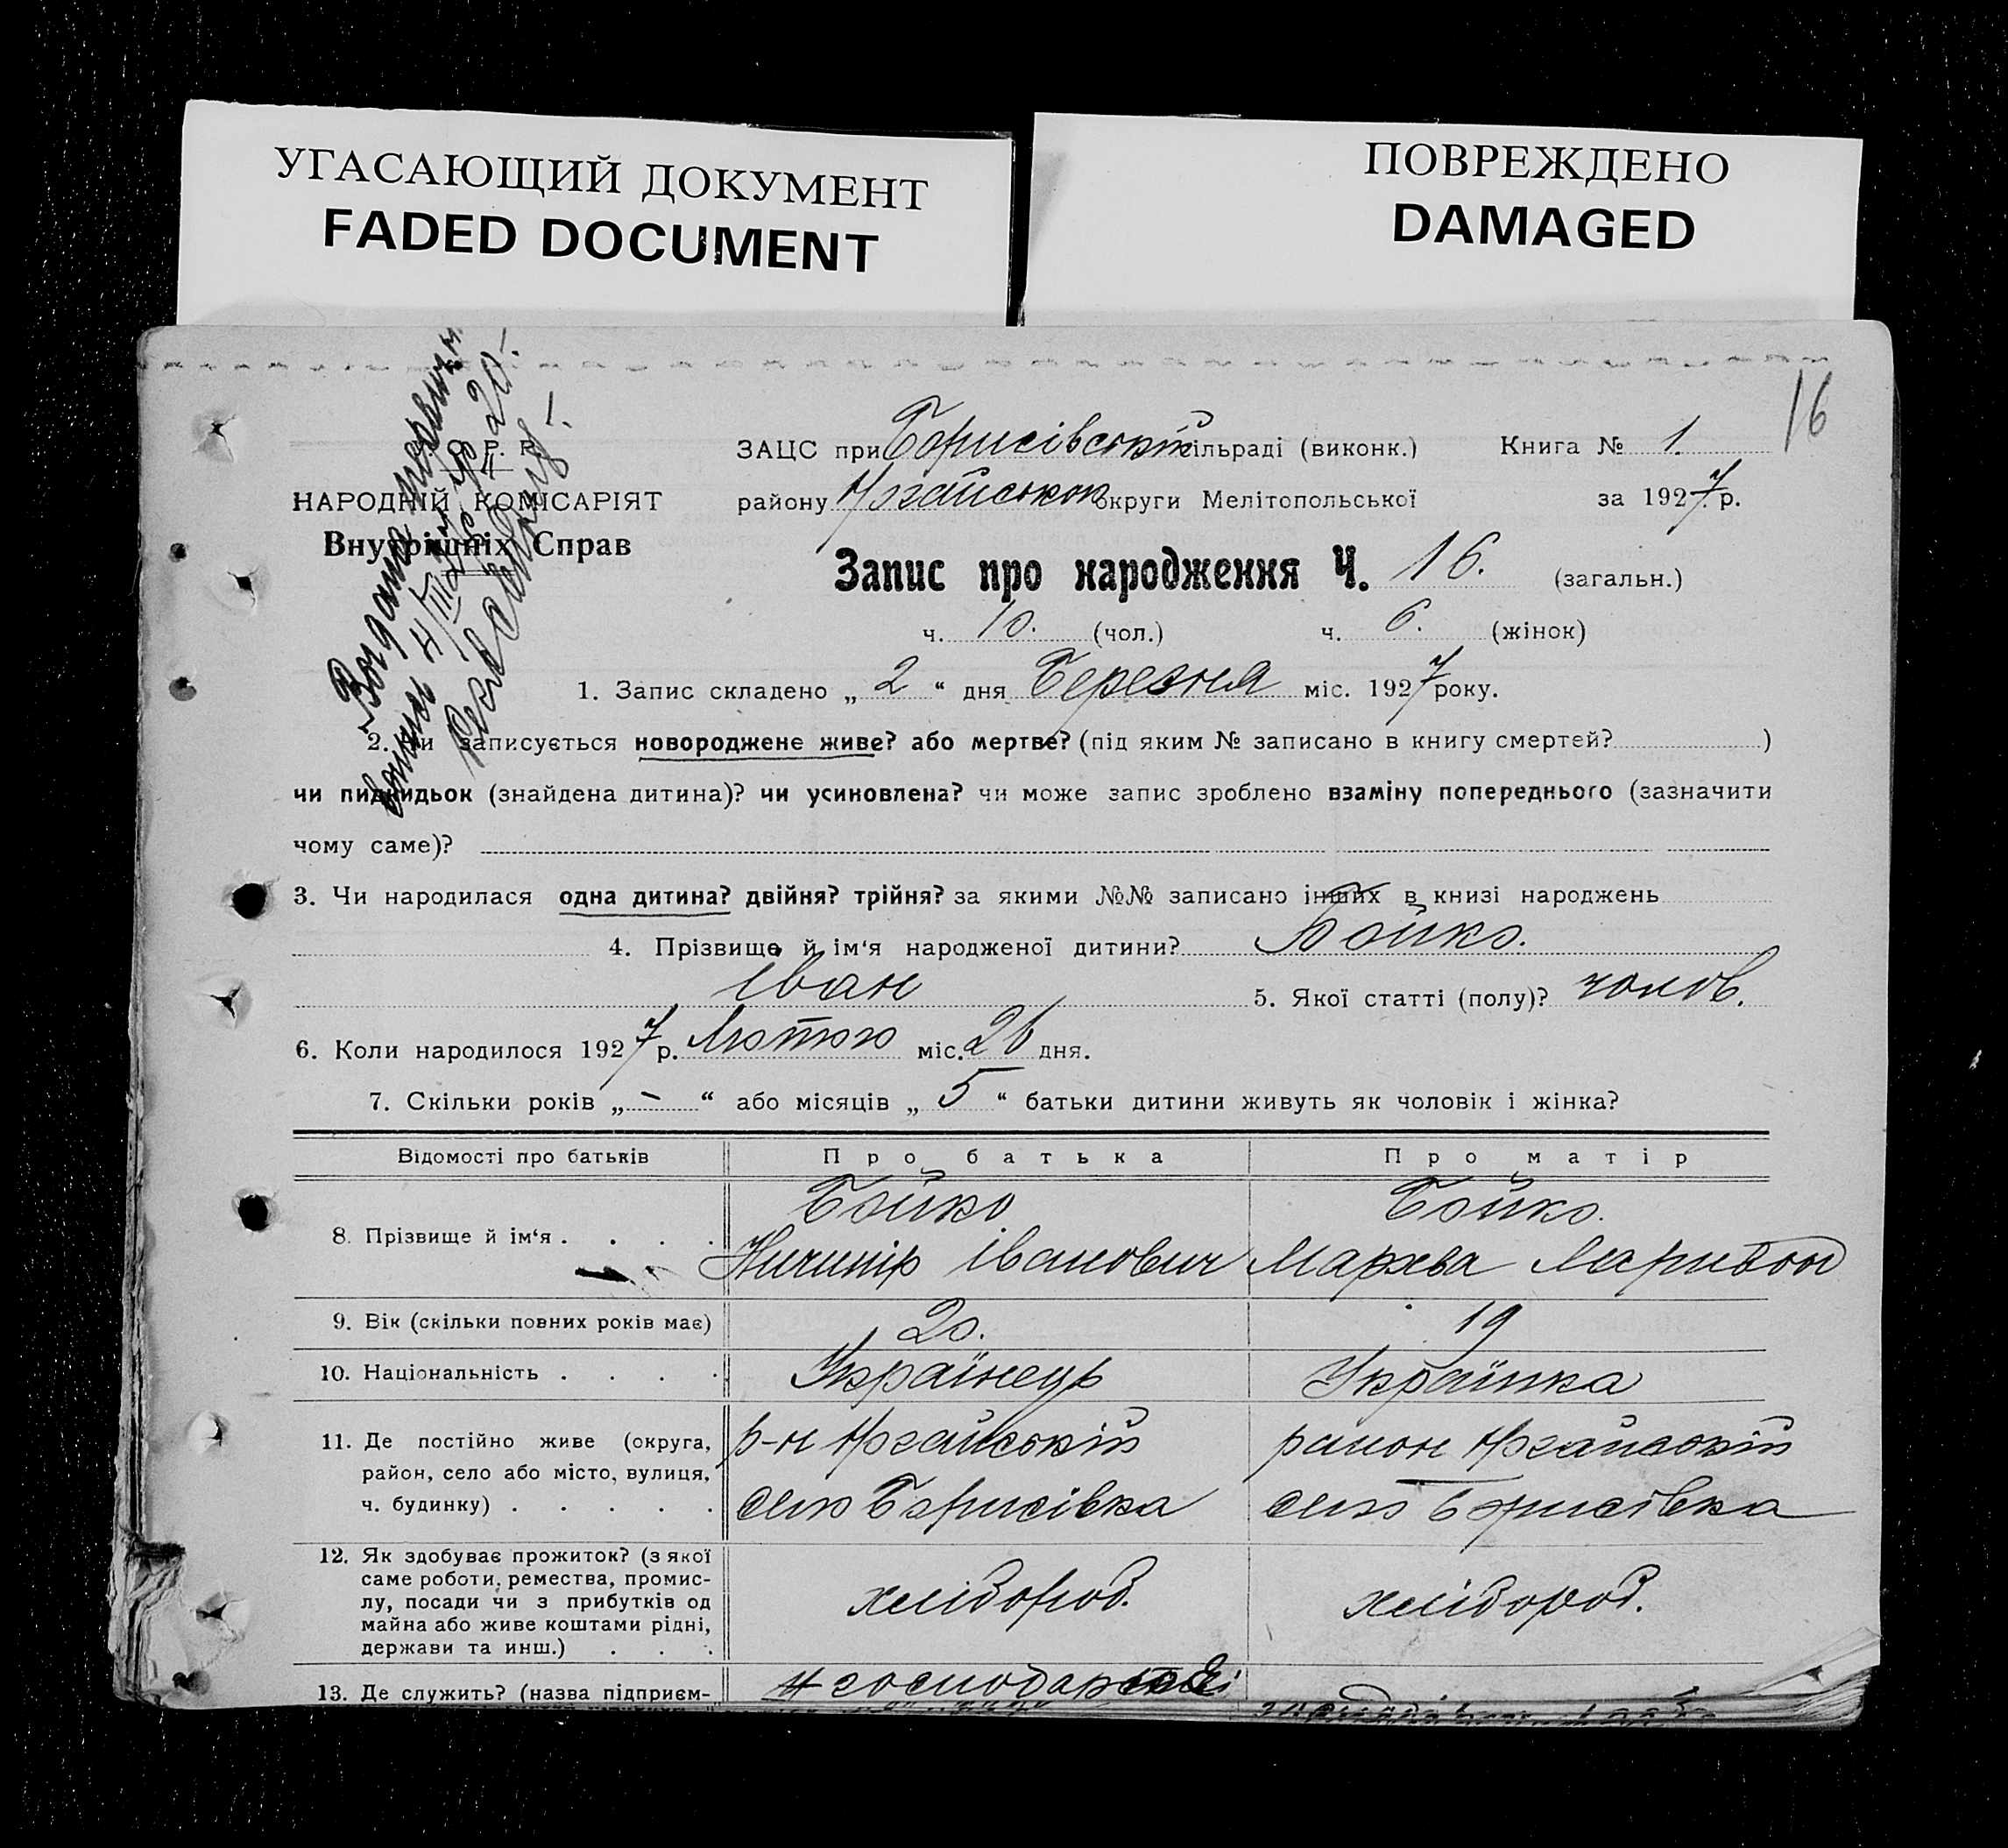 УГАСАЮЩИЙ ДОКУМЕНТ
FADED DOCUMENT
ПОВРЕЖДЕНО
DAMAGED
16
НАРОДНІЙ КОМІСАРІЯТ
Внутрішніх Справ
ЗАЦС при Борисівській сільраді (виконк.) Книга № 1.
району округи Мелітопольської за 1927 р.
Запис про народження Ч. 16. (загальн.)
ч. 10. (чол.) ч. 6. (жінок)
1. Запис складено „ 2 “ дня Березня міс. 1927 року.
2. Чи записується новороджене живе? або мертве? (під яким № записано в книгу смертей? )
чи пидкидьок (знайдена дитина)? чи усиновлена? чи може запис зроблено взаміну попереднього (зазначити
чому саме)?
3. Чи народилася одна дитина? двійня? трійня? за якими №№ записано інших в книзі народжень
4. Прізвище й ім‘я народженої дитини? Бойко.
Іван 5. Якої статті (полу)? чолов.
6. Коли народилося 1927 р. Лютого міс. 26 дня.
7. Скільки років „ – “ або місяців „ 5 “ батьки дитини живуть як чоловік і жінка?
Відомості про батьків Про батька Про матір
8. Прізвище й ім‘я . . . . Бойко Бойко.
Ничипір Іванович
9. Вік (скільки повних років має) 20. 19
10. Національність . . . . Українець Українка
11. Де постійно живе (округа, р-н район
район, село або місто, вулиця,
ч. будинку) . . . . . село Борисівка село Борисівка
12. Як здобуває прожиток? (з якої
саме роботи, ремества, промис-
лу, посади чи з прибутків од хлібороб. хлібороб.
майна або живе коштами рідні,
держави та инш.) . . .
13. Де служить? (назва підприєм- господарстві